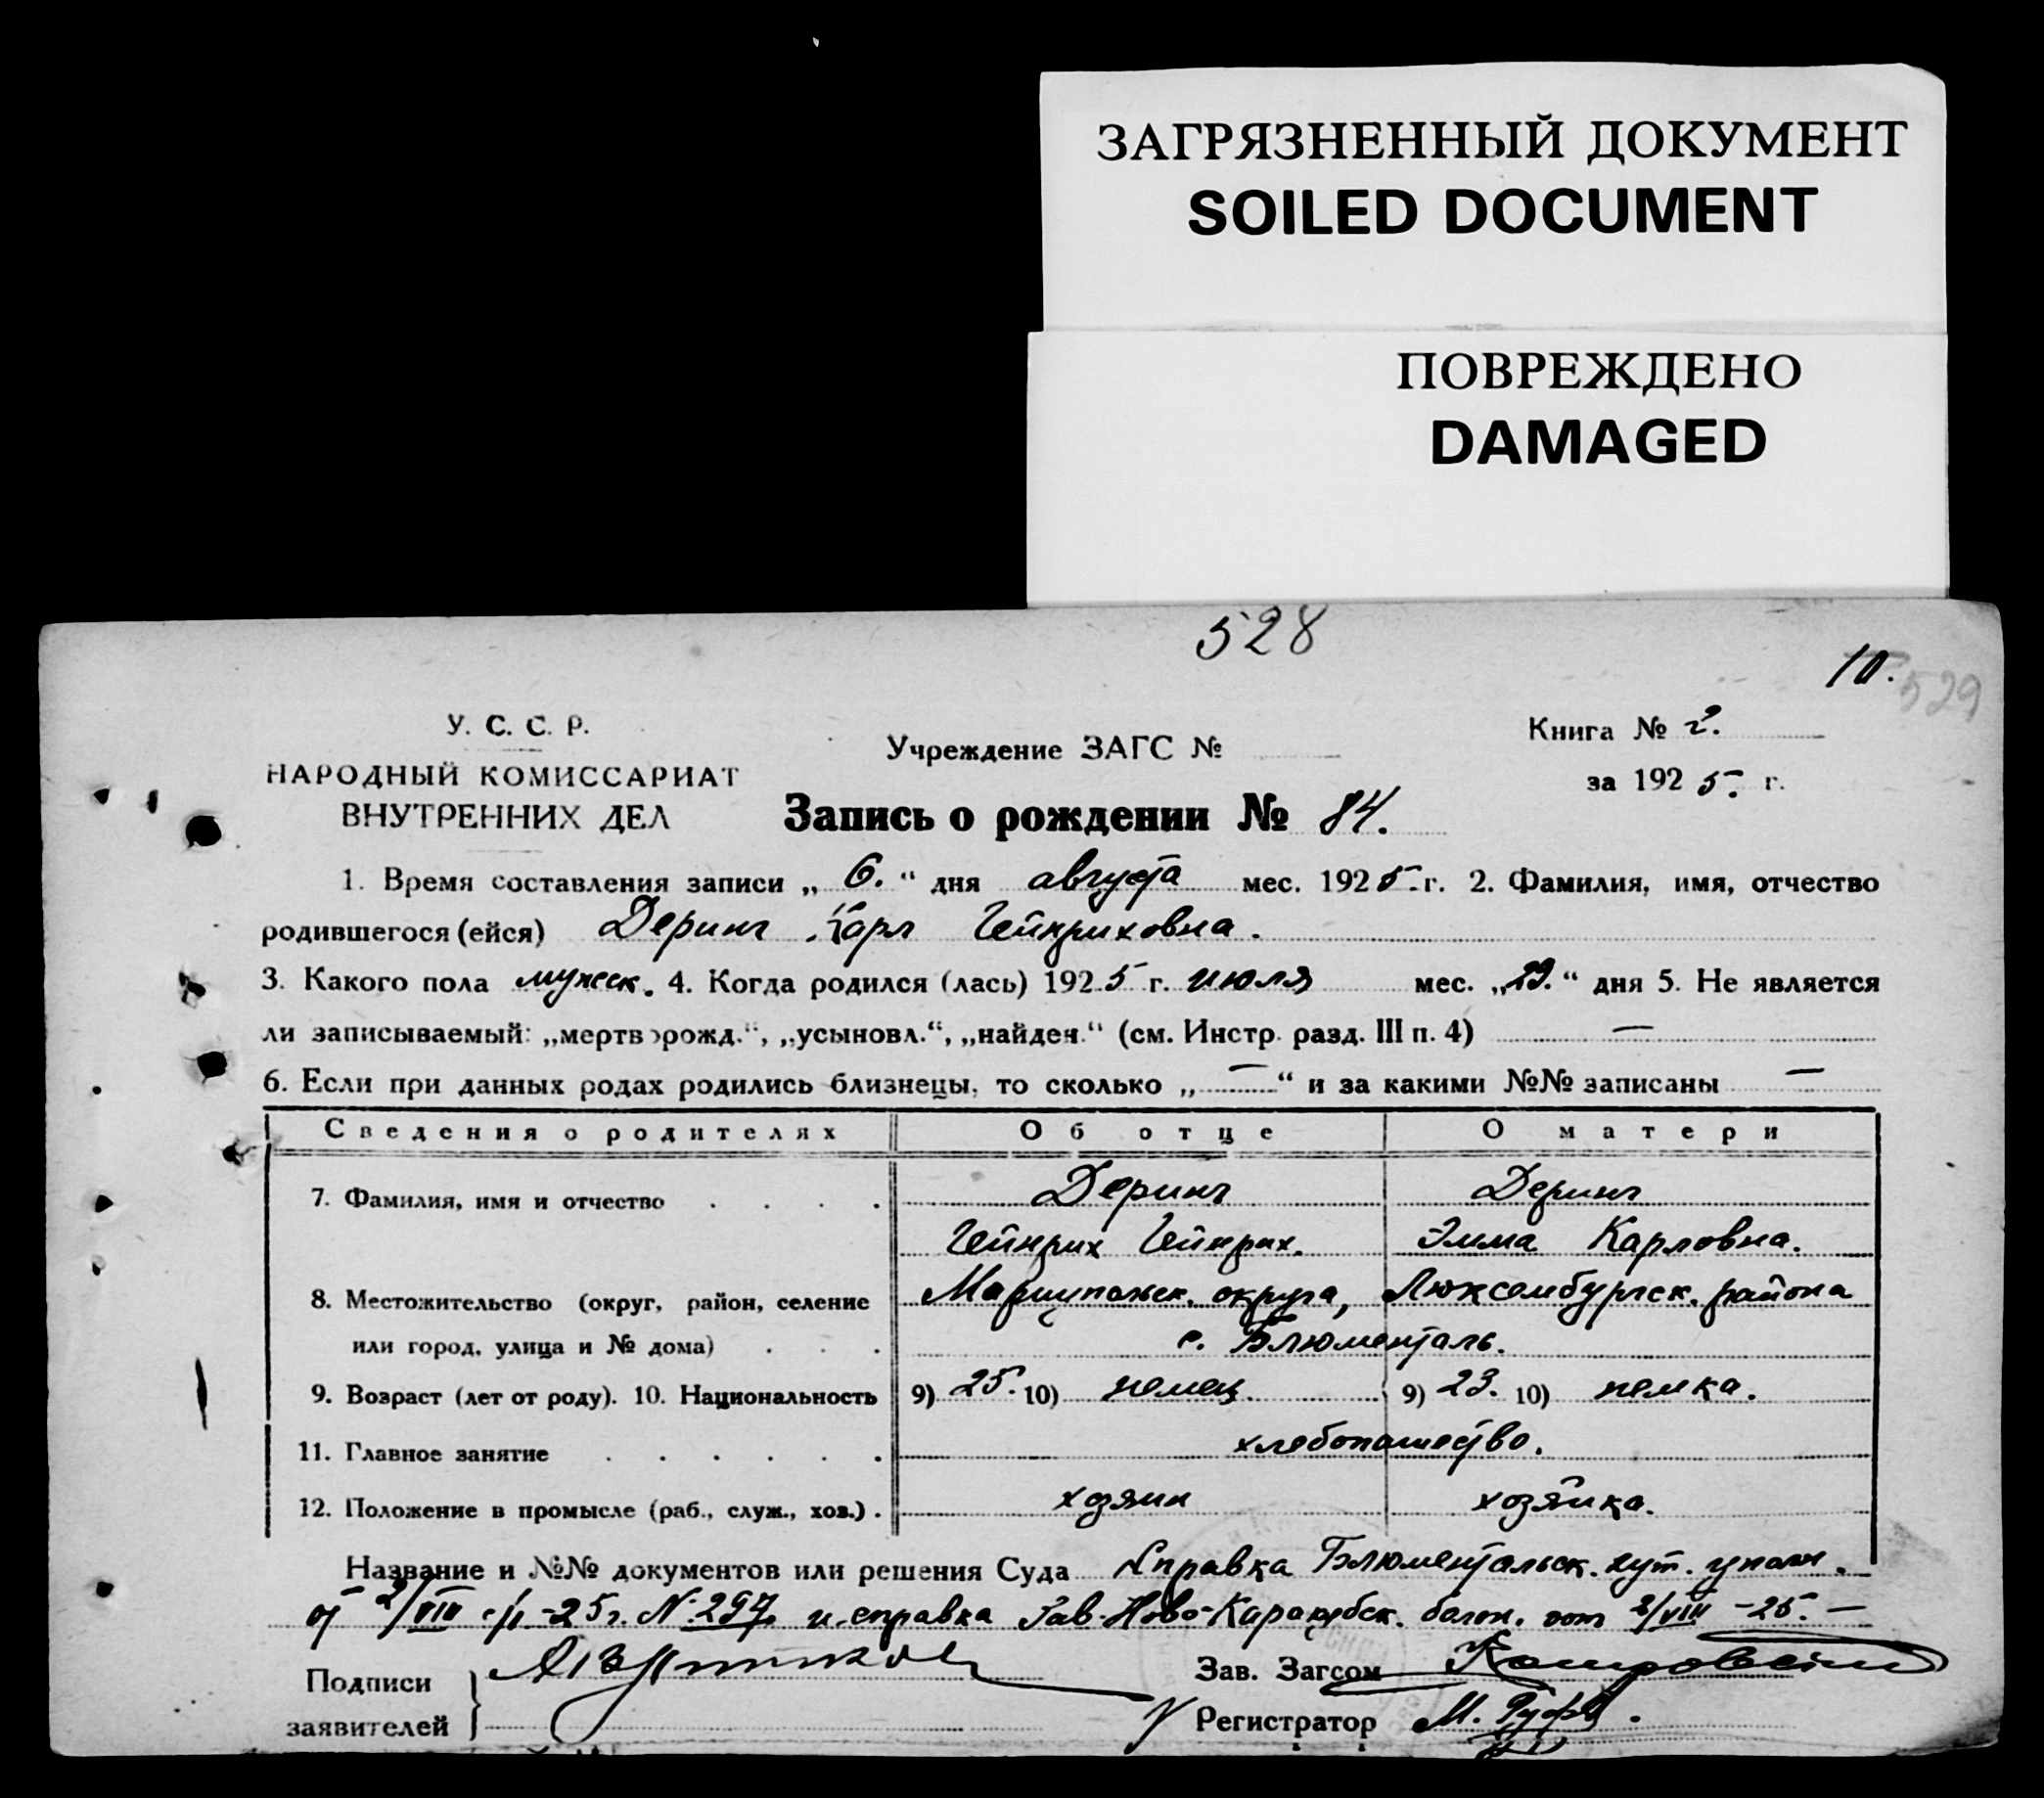 ЗАГРЯЗНЕННЫЙ ДОКУМЕНТ
SOILED DOCUMENT
ПОВРЕЖДЕНО
DAMAGED
528
10.
529
У. С. С. Р.
НАРОДНЫЙ КОМИССАРИАТ
ВНУТРЕННИХ ДЕЛ
Учреждение ЗАГС №
Книга № 2.
за 1925. г.
Запись о рождении № 84.
1. Время составления записи „ 6. “ дня августа мес. 1925. г. 2. Фамилия, имя, отчество
родившегося (ейся) Деринг Карл Гейнриховна.
3. Какого пола мужск. 4. Когда родился (лась) 1925 г. июля мес. „29.“ дня 5. Не является
ли записываемый: „мертворожд.“, „усыновл.“, „найден.“ (см. Инстр. разд. III п. 4) —
6. Если при данных родах родились близнецы, то сколько „—“ и за какими №№ записаны —
Сведения о родителях Об отце О матери
7. Фамилия, имя и отчество . . . . Деринг Деринг
Гейнрих Гейнрих. Эмма Карловна.
8. Местожительство (округ, район, селение Мариупольск. округа, Люксембургск. района
или город, улица и № дома) . . . с. Блюменталь.
9. Возраст (лет от роду). 10. Национальность 9) 25. 10) немец. 9) 23. 10) немка.
11. Главное занятие . . . . . . хлебопашество.
12. Положение в промысле (раб., служ., хоз.) . хозяин хозяйка.
Название и №№ документов или решения Суда Справка Блюментальск. хут. уполн.
от 2/VIII с/г -25г. № 297 и справка Ново-Каракубск. от 2/VIII -25. —
Подписи
заявителей
Зав. Загсом
Регистратор М.